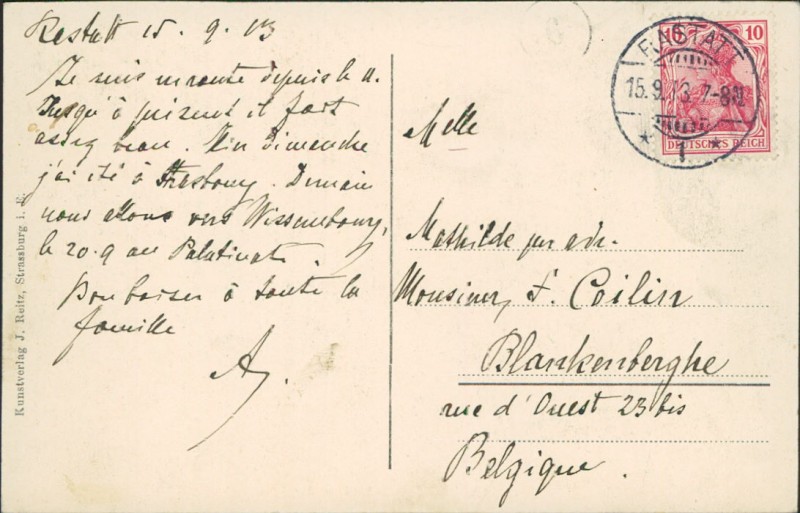 Rastatt 15. 9. 13
Je suis en route depuis le 11.
Jusqu'à présent il fait
assez beau. Hier dimanche
j'ai été à Strasbourg. Demain
nous allons vers Wissembourg,
le 20.9 au Palatinat.
Bon baiser à toute la
famille
A.
Kunstverlag J. Reitz, Strassburg i. E.
RASTATT
15.9.13. 7-8N
* 1 *
10 10
DEUTSCHES REICH
Melle
Mathilde par adr.
Monsieur F. Coilin
Blankenberghe
rue d'Ouest 23 bis
Belgique.